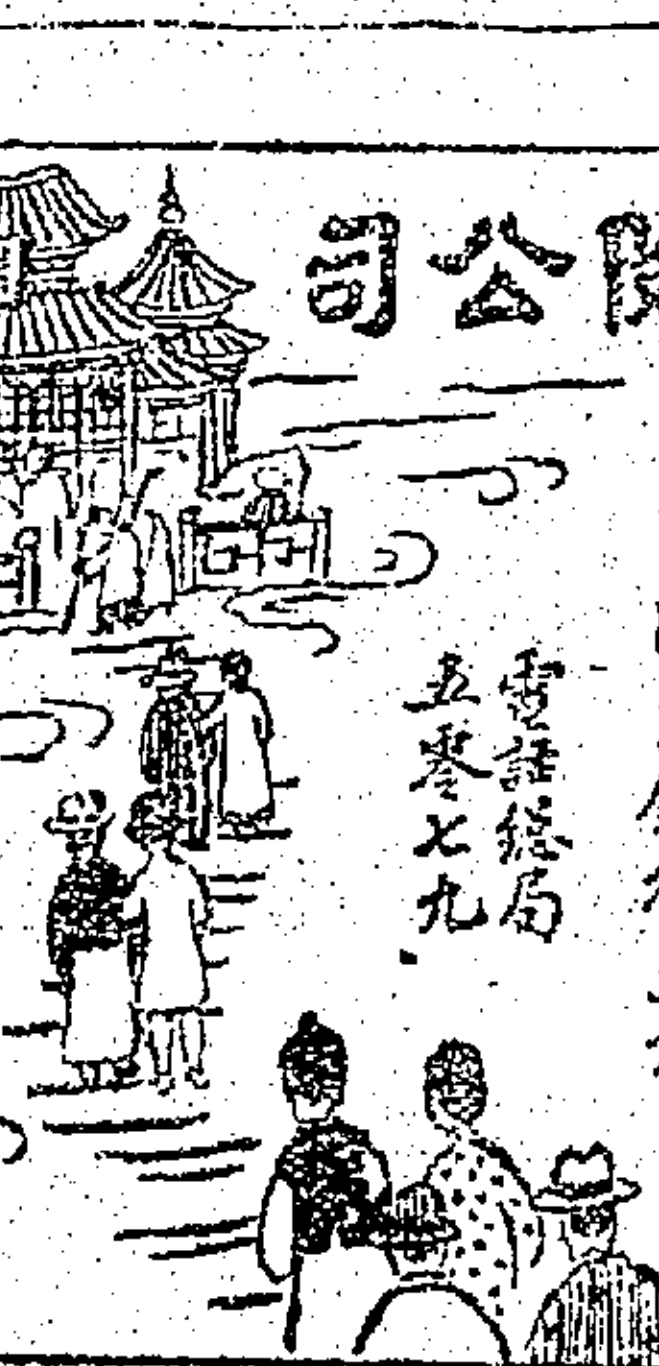 公司
電話總局
五零七九